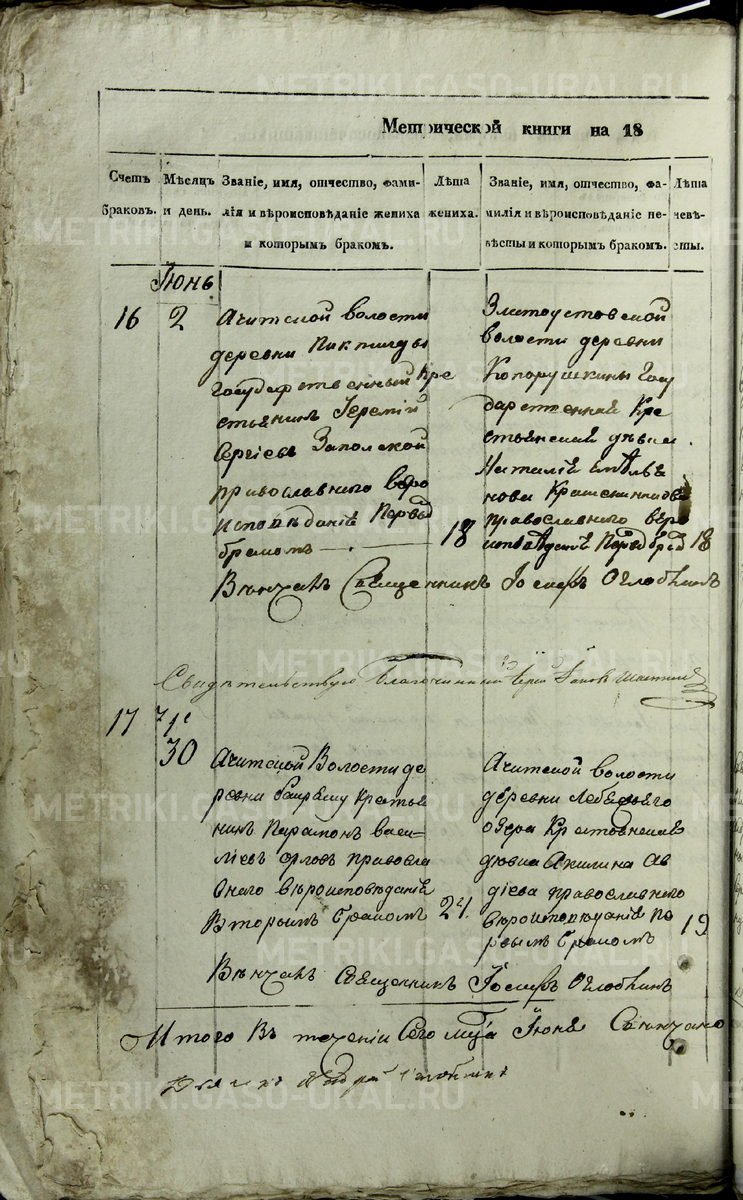 METRIKI.GASO-URAL.RU
Метрической книги на 18
Счетъ браковъ.
Мѣсяцъ и день.
Званіе, имя, отчество, фами-
лія и вѣроисповѣданіе жениха
и которымъ бракомъ.
Лѣта жениха.
Званіе, имя, отчество, фа-
милія и вѣроисповѣданіе не-
вѣсты и которымъ бракомъ.
Лѣта невѣ-
сты.
Іюнь
16
2
Ачитской волости
деревни
Государственный Кре
стьянинъ Іеремій
Сергіевъ Заполской
православнаго веро
исповѣданіе Первы
бракомъ
18
Златоустовской
волости деревни
Копорушкины Госу
дарственная Кре
стьянская дѣвица
Наталія Емѣлья
нова
православнаго веро
исповѣданіе
18
Вѣнчалъ Священникъ Іосифъ Оглоблинъ
Свидѣтельствую Благочинный Іерей Іаковъ
17
30
Ачитской Волости де
ревни Крестья
нинъ Парамонъ васи-
ліевъ орловъ правосла
внаго вѣроисповѣданіе
Вторымъ бракомъ
24
Ачитской волости
деревни Лебяжьяго
озера Крестьянская
дѣвица Акилина Ав
діева православнаго
вѣроисповѣданіе пе
рвымъ бракомъ
19
Вѣнчалъ священникъ Іосифъ Оглоблинъ
Итого Въ теченіи Сего мца Іюня Свѣнчано